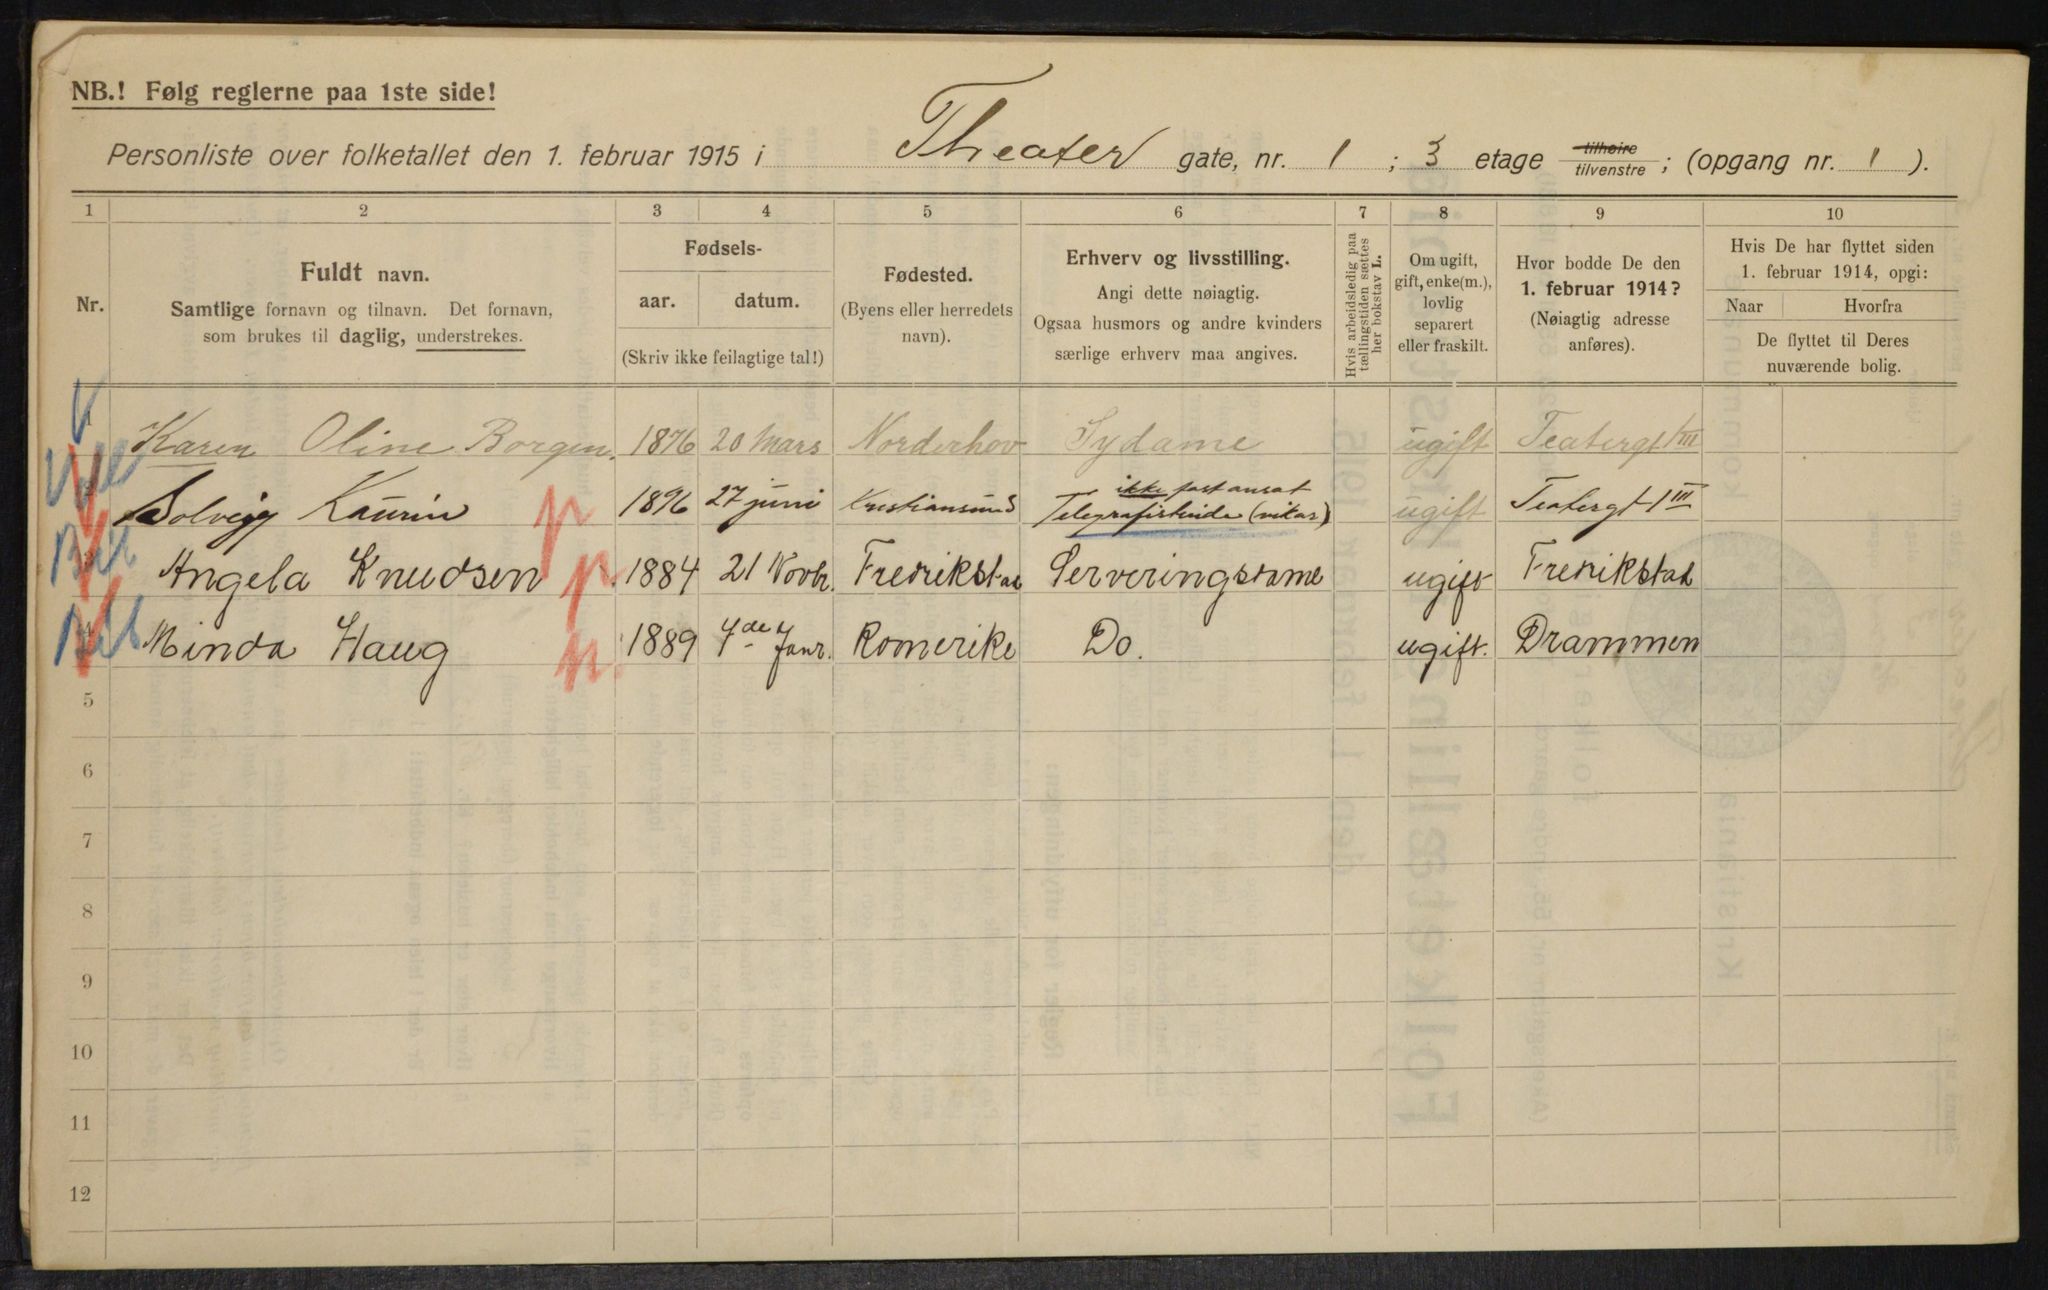 NB.! Følg reglerne paa 1ste side!
Personliste over folketallet den 1. februar 1915 i Theater gate, nr. 1 ; 3 etage tilhøire tilvenstre ; (opgang nr. 1 ).
1 2 3 4 5 6 7 8 9 10
Nr.
Fuldt navn.
Samtlige fornavn og tilnavn. Det fornavn,
som brukes til daglig, understrekes.
Fødsels-
aar. datum.
(Skriv ikke feilagtige tal!)
Fødested.
(Byens eller herredets
navn).
Erhverv og livsstilling.
Angi dette nøiagtig.
Ogsaa husmors og andre kvinders
særlige erhverv maa angives.
Hvis arbeidsledig paa
tællingstiden sættes
her bokstav L.
Om ugift,
gift, enke(m.),
lovlig
separert
eller fraskilt.
Hvor bodde De den
1. februar 1914?
(Nøiagtig adresse
anføres).
Hvis De har flyttet siden
1. februar 1914, opgi:
Naar Hvorfra
De flyttet til Deres
nuværende bolig.
1 Karen Oline Borgen. 1876 20 Mars Norderhov Sydame ugift Teatergt 1 III
ikke fast ansat
2 Solveig Kaurin p 1896 27 juni Kristiansund Telegrafistinde (vikar) ugift Teatergt 1 III
3 Angela Knudsen p. 1884 21 Novbr. Fredrikstad Serveringsdame ugift Fredrikstad
4 Minda Haug p. 1889 7de Janr. Romerike Do. ugift. Drammen
5
6
7
8
9
10
11
12